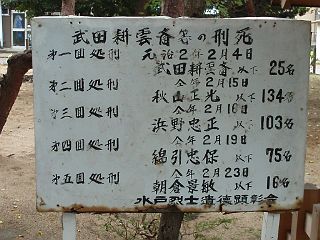 武田耕雲斎等の刑死
第一回処刑 元治2年2月4日
武田耕雲斎 以下 25名
第二回処刑 仝年2月15日
秋山正光 以下 134名
第三回処刑 仝年2月16日
浜野忠正 以下 103名
第四回処刑 仝年2月19日
綿引忠保 以下 75名
第五回処刑 仝年2月23日
朝倉景敏 以下 16名
水戸烈士遺徳顕彰会